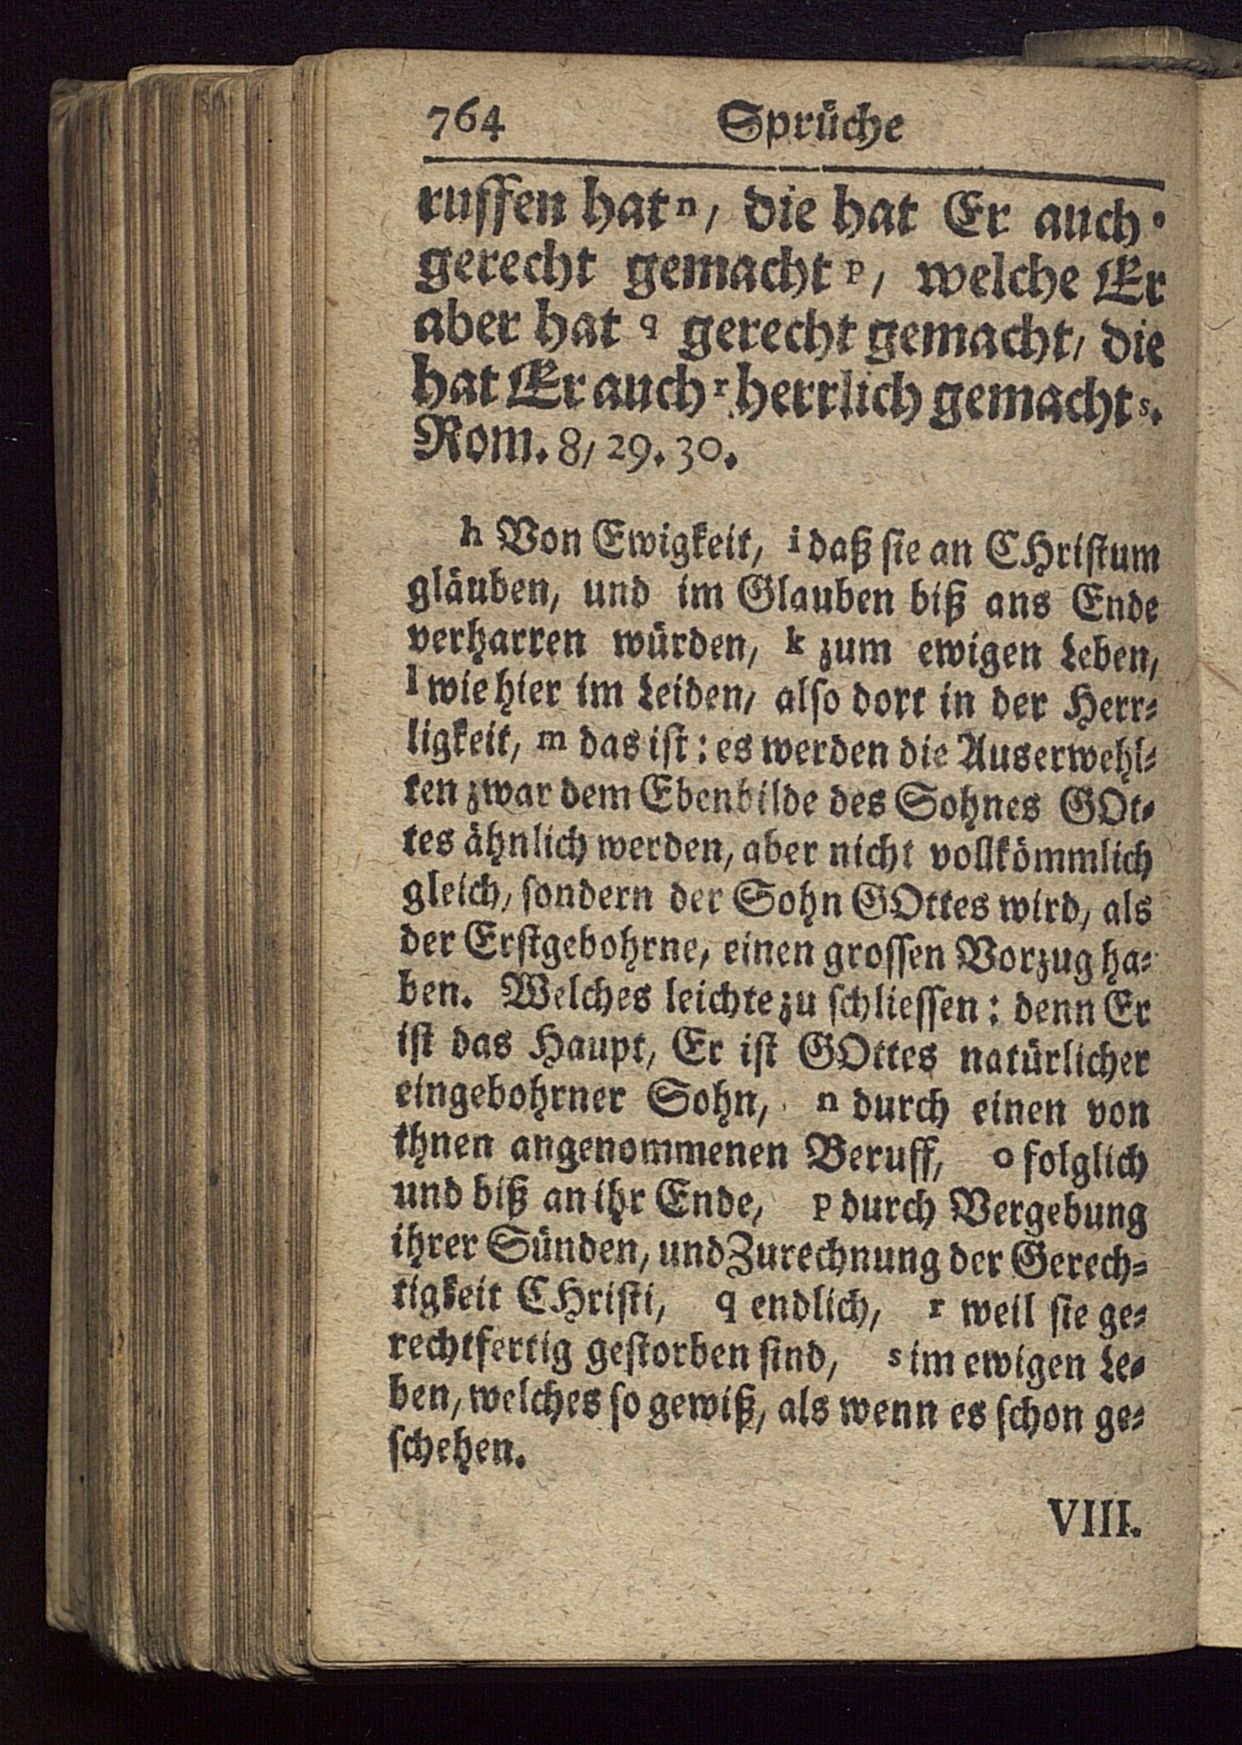 764 Sprüche
ruffen hat n, die hat Er auch o
gerecht gemacht p, welche Er
aber hat q gerecht gemacht, die
hat Er auch r herrlich gemacht s.
Rom. 8, 29. 30.
h Von Ewigkeit, i daß sie an CHristum
gläuben, und im Glauben biß ans Ende
verharren würden, k zum ewigen Leben,
l wie hier im Leiden, also dort in der Herr-
ligkeit, m das ist: es werden die Auserwehl-
ten zwar dem Ebenbilde des Sohnes GOt-
tes ähnlich werden, aber nicht vollkömmlich
gleich, sondern der Sohn GOttes wird, als
der Erstgebohrne, einen grossen Vorzug ha-
ben. Welches leichte zu schliessen: denn Er
ist das Haupt, Er ist GOttes natürlicher
eingebohrner Sohn, n durch einen von
ihnen angenommenen Beruff, o folglich
und biß an ihr Ende, p durch Vergebung
ihrer Sünden, und Zurechnung der Gerech-
tigkeit CHristi, q endlich, r weil sie ge-
rechtfertig gestorben sind, s im ewigen Le-
ben, welches so gewiß, als wenn es schon ge-
schehen.
VIII.